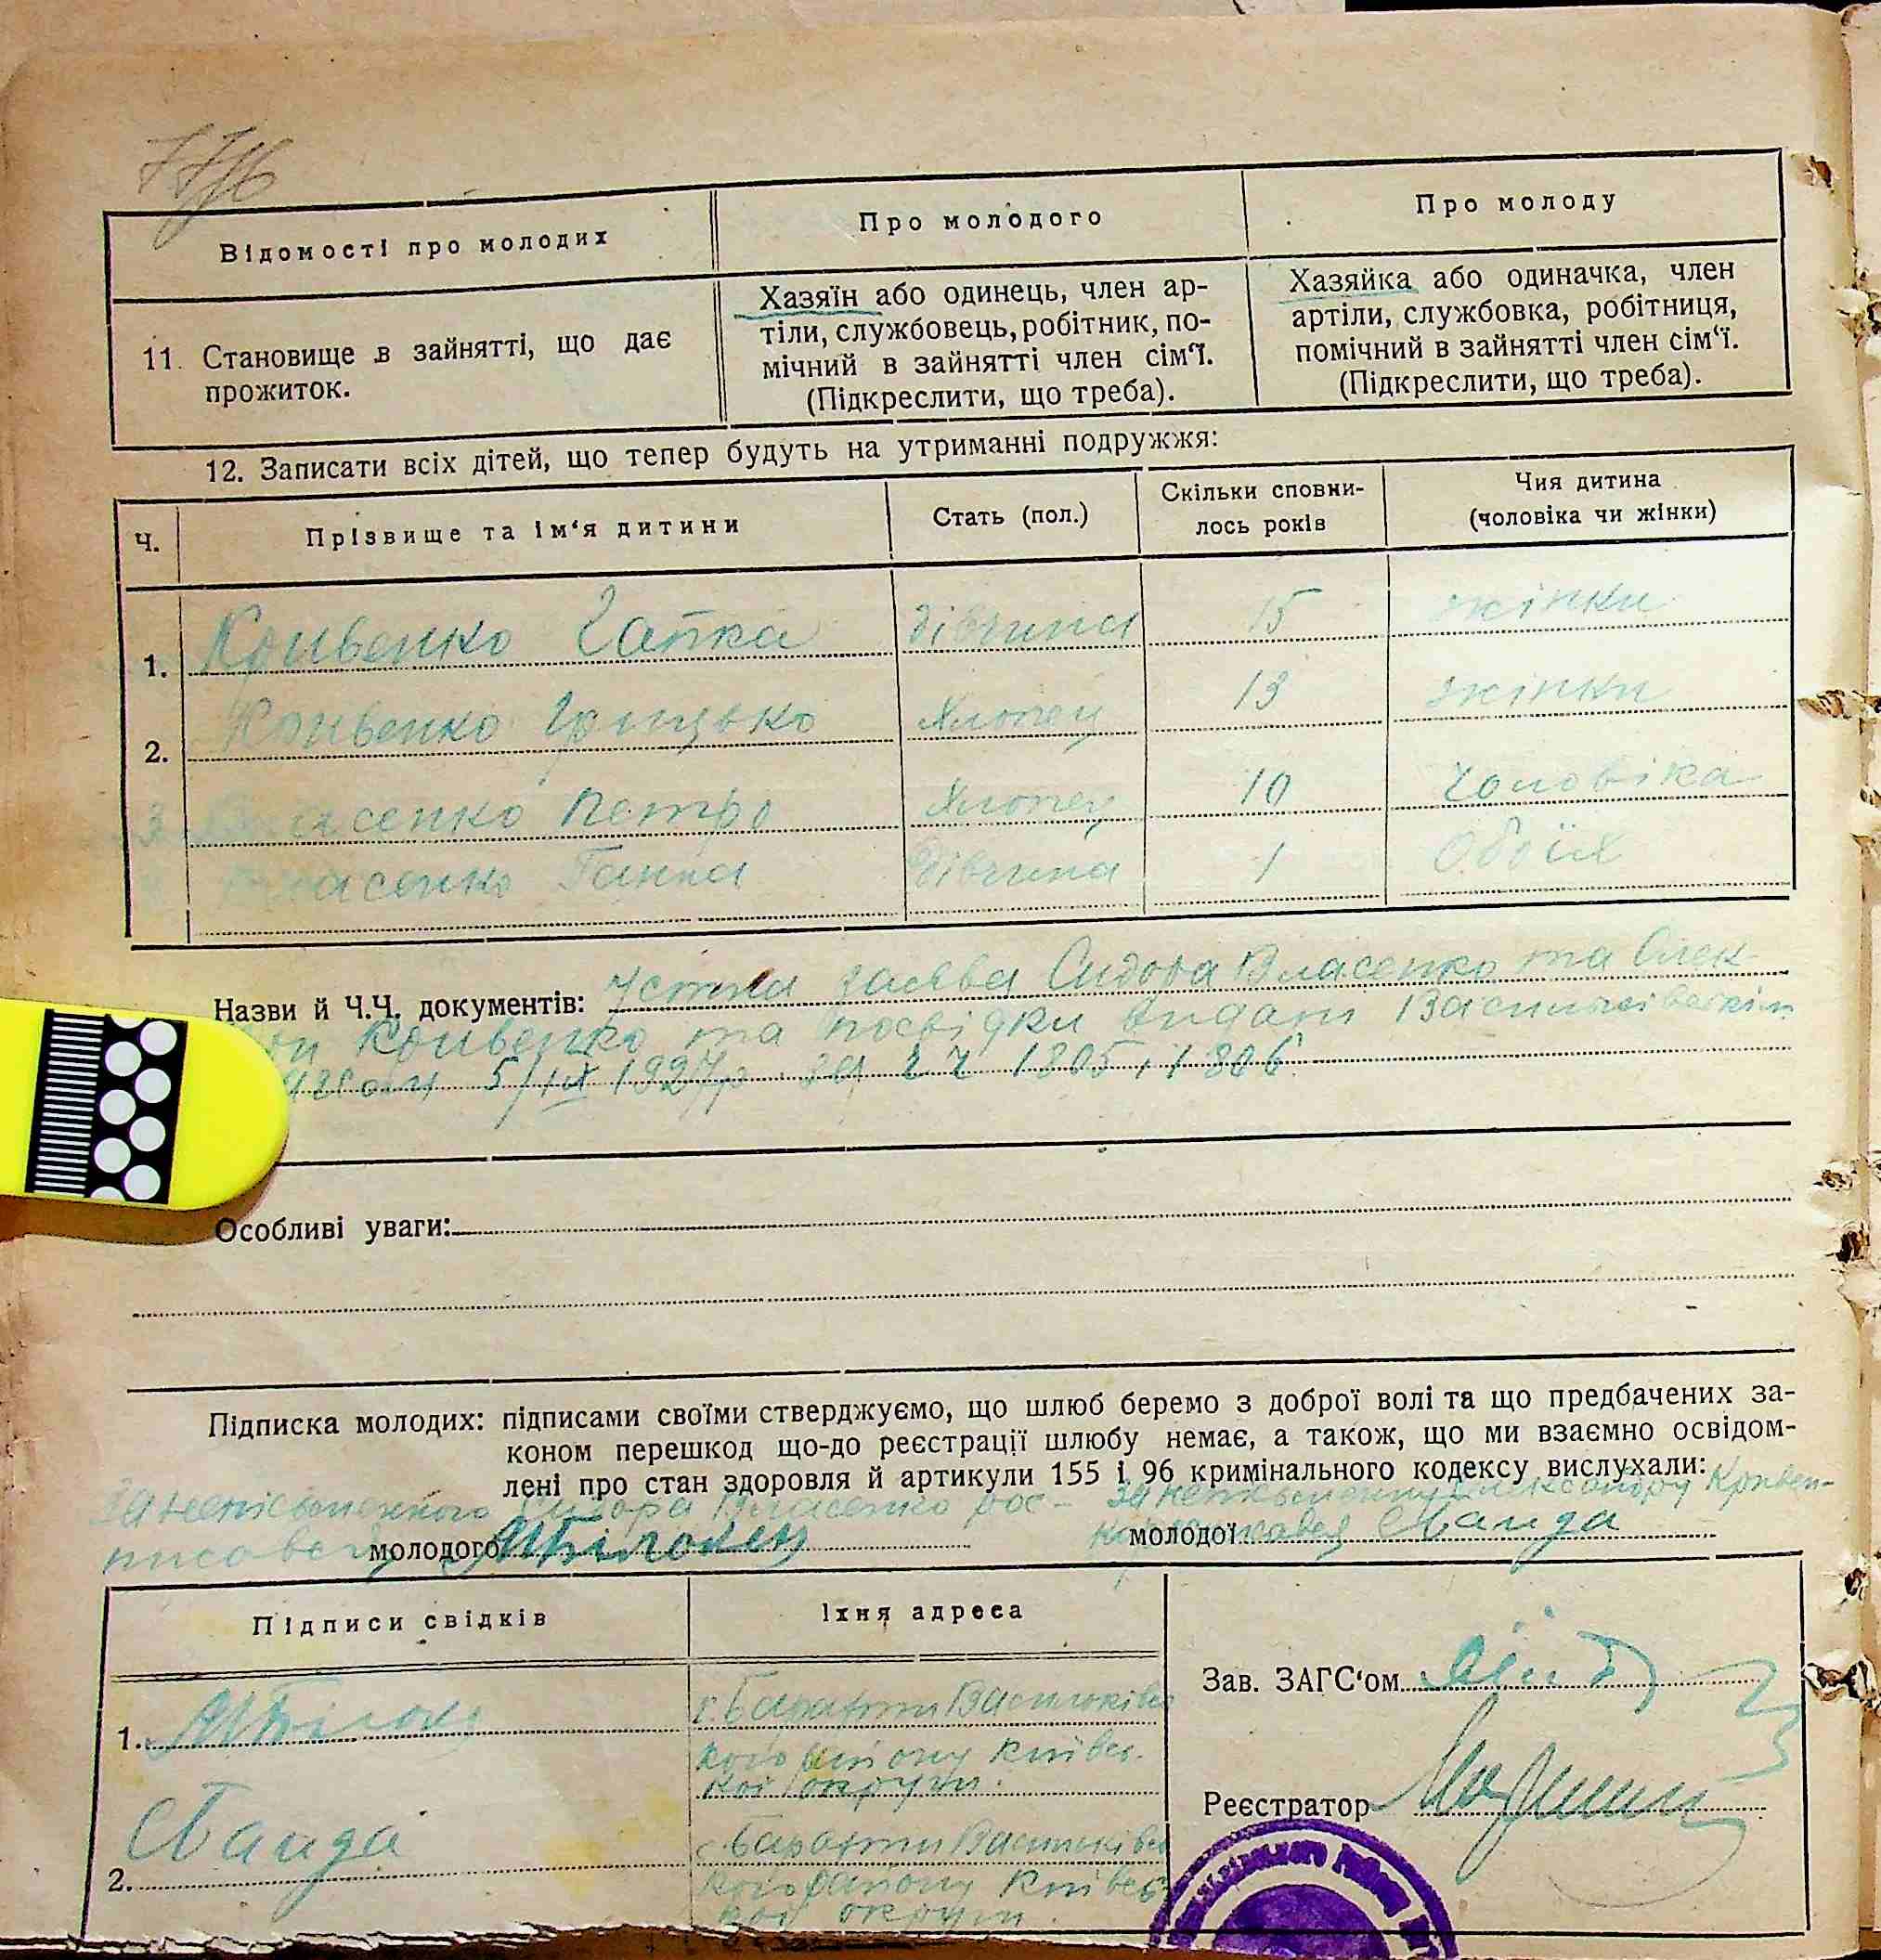 Відомості про молодих
Про молодого
Про молоду
11. Становище в зайнятті, що дає
прожиток.
Хазяїн або одинець, член ар-
тіли, службовець, робітник, по-
мічний в зайнятті член сім‘ї.
(Підкреслити, що треба).
Хазяйка або одиначка, член
артіли, службовка, робітниця,
помічний в зайнятті член сім‘ї.
(Підкреслити, що треба).
12. Записати всіх дітей, що тепер будуть на утриманні подружжя:
Ч.
Прізвище та ім‘я дитини
Стать (пол.)
Скільки сповни-
лось років
Чия дитина
(чоловіка чи жінки)
1. Кривенко Гапка дівчина 15 жінки
2. Кривенко Грицько Хлопец 13 жінки
3. Власенко Петро Хлопец 10 Чоловіка
Власенко Ганна Дівчина 1 Обоїх
Назви й Ч.Ч. документів: Устна заява Сидора Власенко та Олек-
Кривенко та посвідки видані
5/IX 1927р. за чч 1805, 1806
Особливі уваги:
Підписка молодих: підписами своїми стверджуємо, що шлюб беремо з доброї волі та що предбачених за-
коном перешкод що-до реєстрації шлюбу немає, а також, що ми взаємно освідом-
лені про стан здоровля й артикули 155 і 96 кримінального кодексу вислухали:
Сидора Власенко рос- Кривен-
молодого
молодої
Підписи свідків
Їхня адреса
1.
с. Барахти Васильківс
кого району Київсь-
кої округи.
2.
с. Барахти Васильківс
кого району Київсь-
кої округи.
Зав. ЗАГС‘ом
Реєстратор